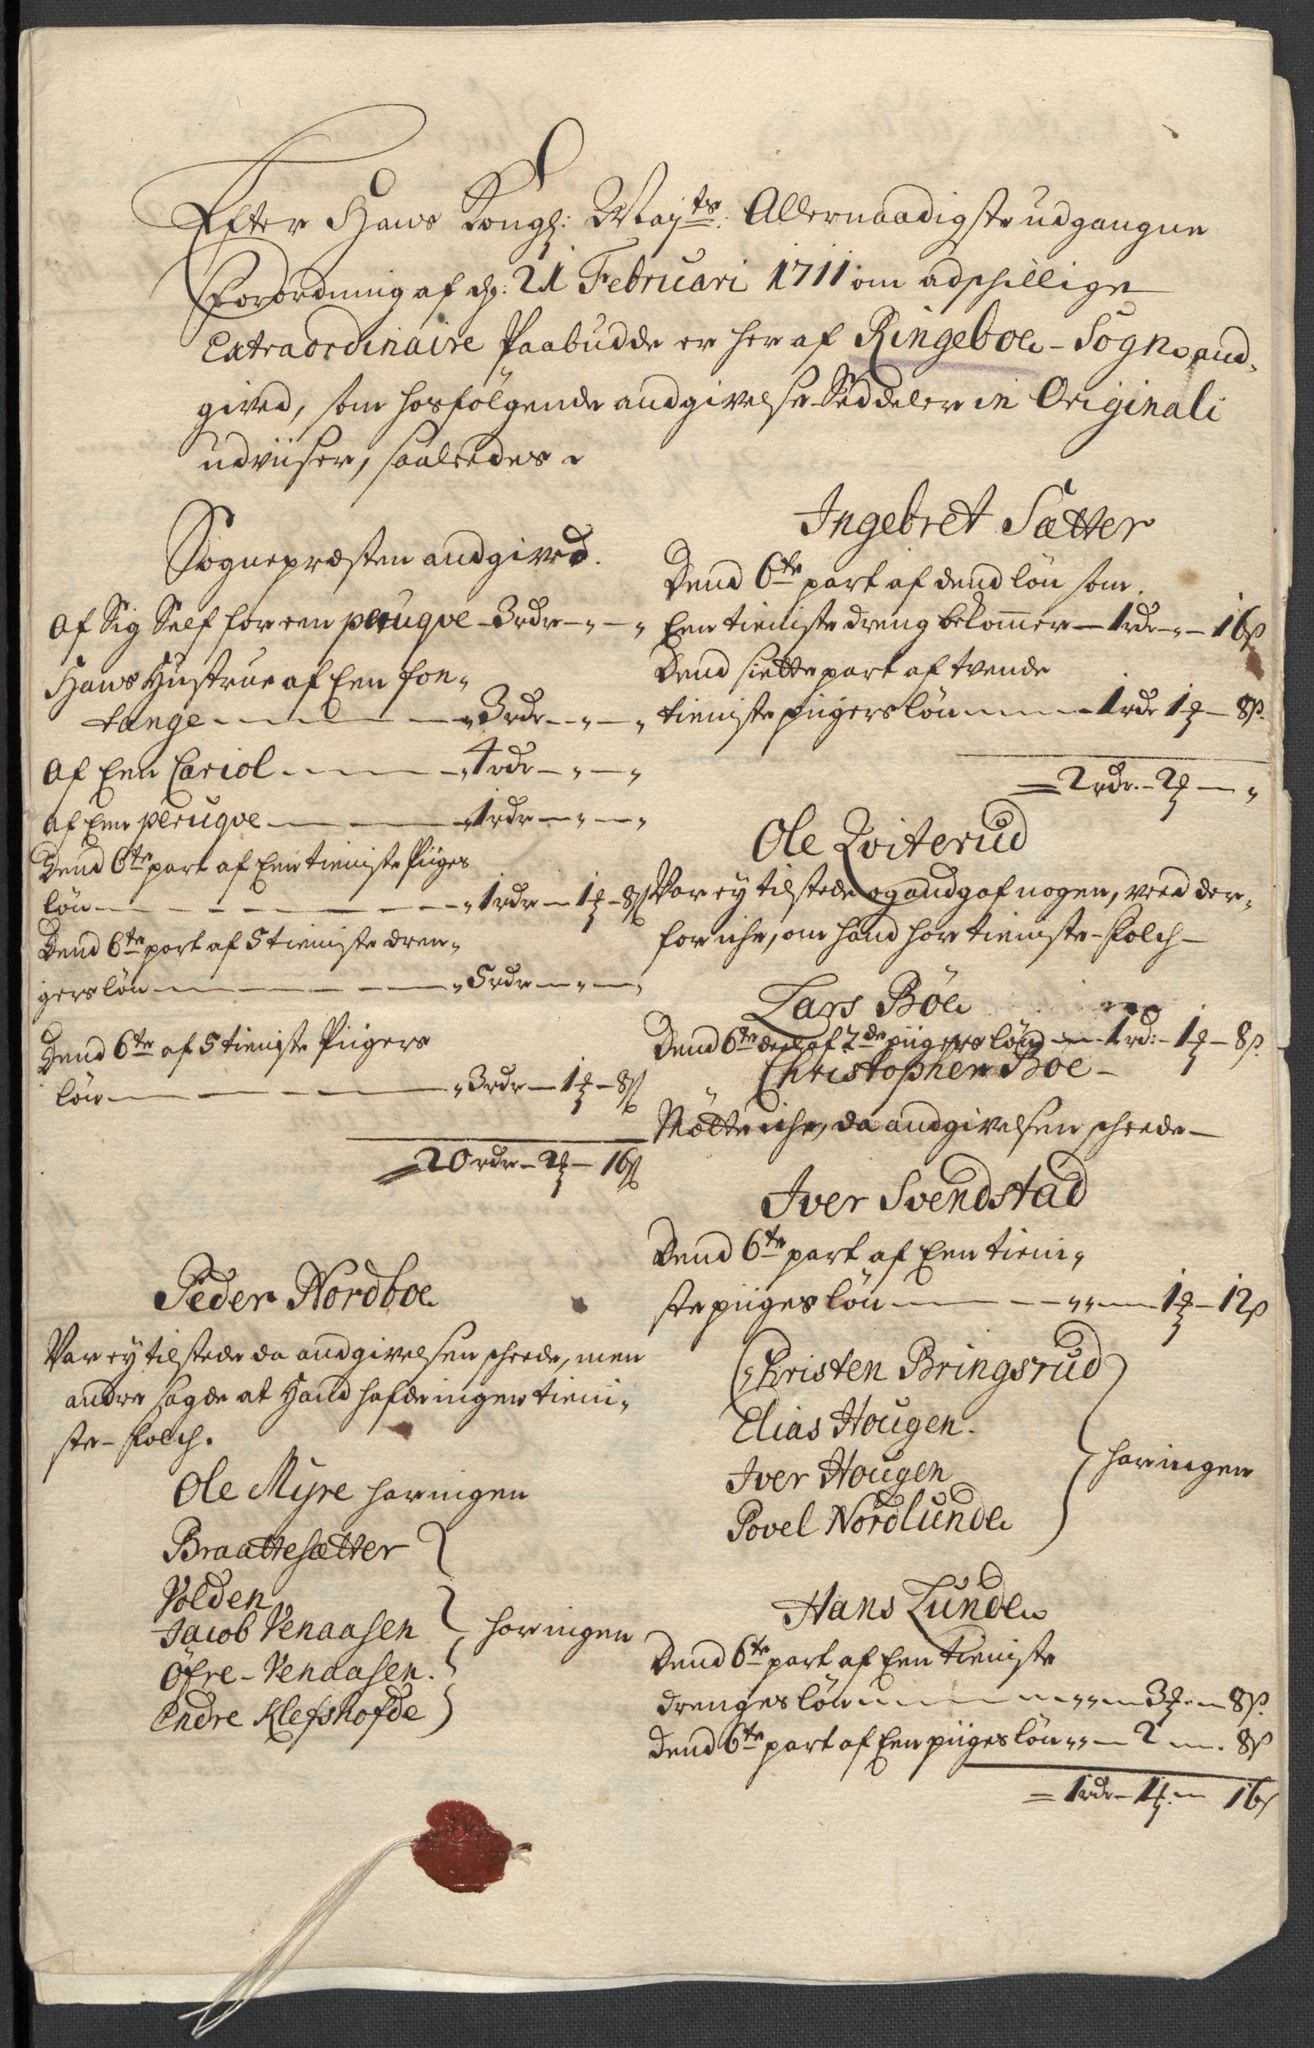 Efter Hans Kongl: Maytts: Allernaadigste udgangne
Forordning af d: 21 Februari 1711 om adschillige
Extraordinaire Paabudde er her af Ringeboe-Sogn and-
gived, som hosfölgende andgivelse Seddeler in Originali
udviiser, saaledes.
Sognepræsten andgived.
Af Sig Self for een peruqve - 3 rdr - " - "
Hans Hustrue af Een fon-
tange - 3 rdr - " - "
Af Een Cariol - 4 rdr - " - "
af Een peruqve - 1 rdr - " - "
Dend 6te part af Een tieniste Piiges
lön - 1 rdr - 1 ꝝ - 8 ß
Dend 6te part af 5 tieniste dren-
gers lön - 5 rdr - " - "
Dend 6te af 5 tieniste Piigers
lön - 3 rdr - 1 ꝝ - 8 ß
= 20 rdr - 2 ꝝ - 16 ß
Peder Nordboe
Var ey tilstede da andgivelsen scheede, men
andre sagde at Hand hafde ingen tieni-
ste-folch.
Ole Myre har ingen
Braattesætter
Volden
Jacob Venaasen
Öfre-Venaasen.
Endre Klefshofde
har ingen
Ingebret Sætter
Dend 6te part af dend lön som
Een tieniste dreng bekommer - 1 rdr - " - 16 ß
Dend siette part af tvende
tieniste piigers lön - 1 rdr 1 ꝝ - 8 ß
= 2 rdr - 2 ꝝ - "
Ole Qviterud
Var ey tilstede og andgaf nogen, veed der-
for iche, om hand har tieniste-folch -
Lars Böe
Dend 6te deel af 2de piigers lön - 1 rd: - 1 ꝝ - 8 ß
Christopher Boe -
Mötte iche, da andgivelsen scheede -
Iver Svendstad
Dend 6te part af Een tieni-
ste piiges lön - " - 1 ꝝ - 12 ß
Christen Bringsrud
Elias Hougen.
Iver Hougen
Povel Nordlunde
har ingen
Hans Lunde
Dend 6te part af Een tieniste
drenges lön - " - 3 ꝝ - 8 ß
Dend 6te part af Een piiges lön " - 2 - 8 ß
= 1 rdr - 1 ꝝ - 16 ß